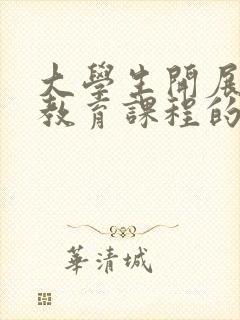 大學生開展
教育課程的
華清城